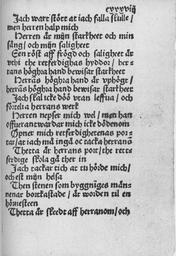 cxxxviij
Jach warт stött at iach falla skulle /
men herren halp mich
Herren är mijn starkheet och min
sång / och mijn saligheet
Een röst aff frögd och saligheet är
vthi the retferdighas hyddor / her-
rans höghra hand bewisar starkheet
Herrans höghra hand är vphögt /
herrans höghra hand bewisar starkheet
Jach skal icke döö vtan leffua / och
förtelia herrans werk
Herren nepser mich wel / men han
offuerantwardar mich icke dödenom
Öpner mich retferdighetenas por-
tar / at iach må ingå oc tacka herranō
Thetta är herrans port / the rette
ferdige skola gå ther in
Jach tackar tich at tu hörde mich /
och est mijn helsa
Then stenen som byggnings män-
nenar bortkastade / är worden til en
hörnesteen
Thetta är skedt aff herranom / och